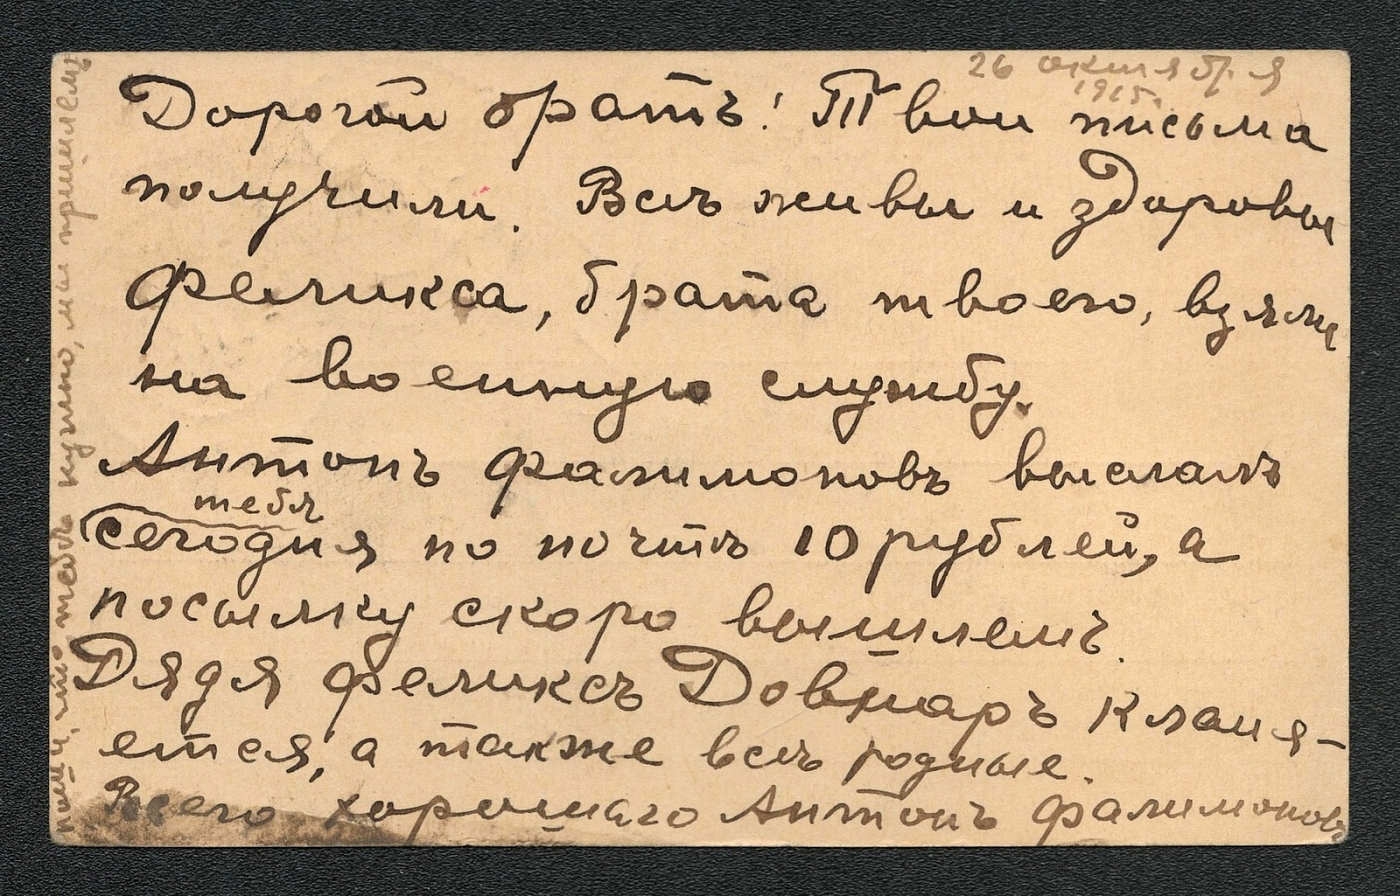 26 октября
1915.
Дорогой братъ! Твои письма
получили. Всѣ живы и здоровы
Феликса, брата твоего, взяли
на военную службу.
Антонъ Фалимоновъ выслалъ
тебѣ
сегодня по почтѣ 10 рублей, а
посылку скоро вышлемъ.
Дядя Феликсъ Довнаръ кланя-
ется, а также всѣ родные.
Всего хорошаго Антонъ Фалимоновъ
что тебѣ нужно, мы пришлемъ